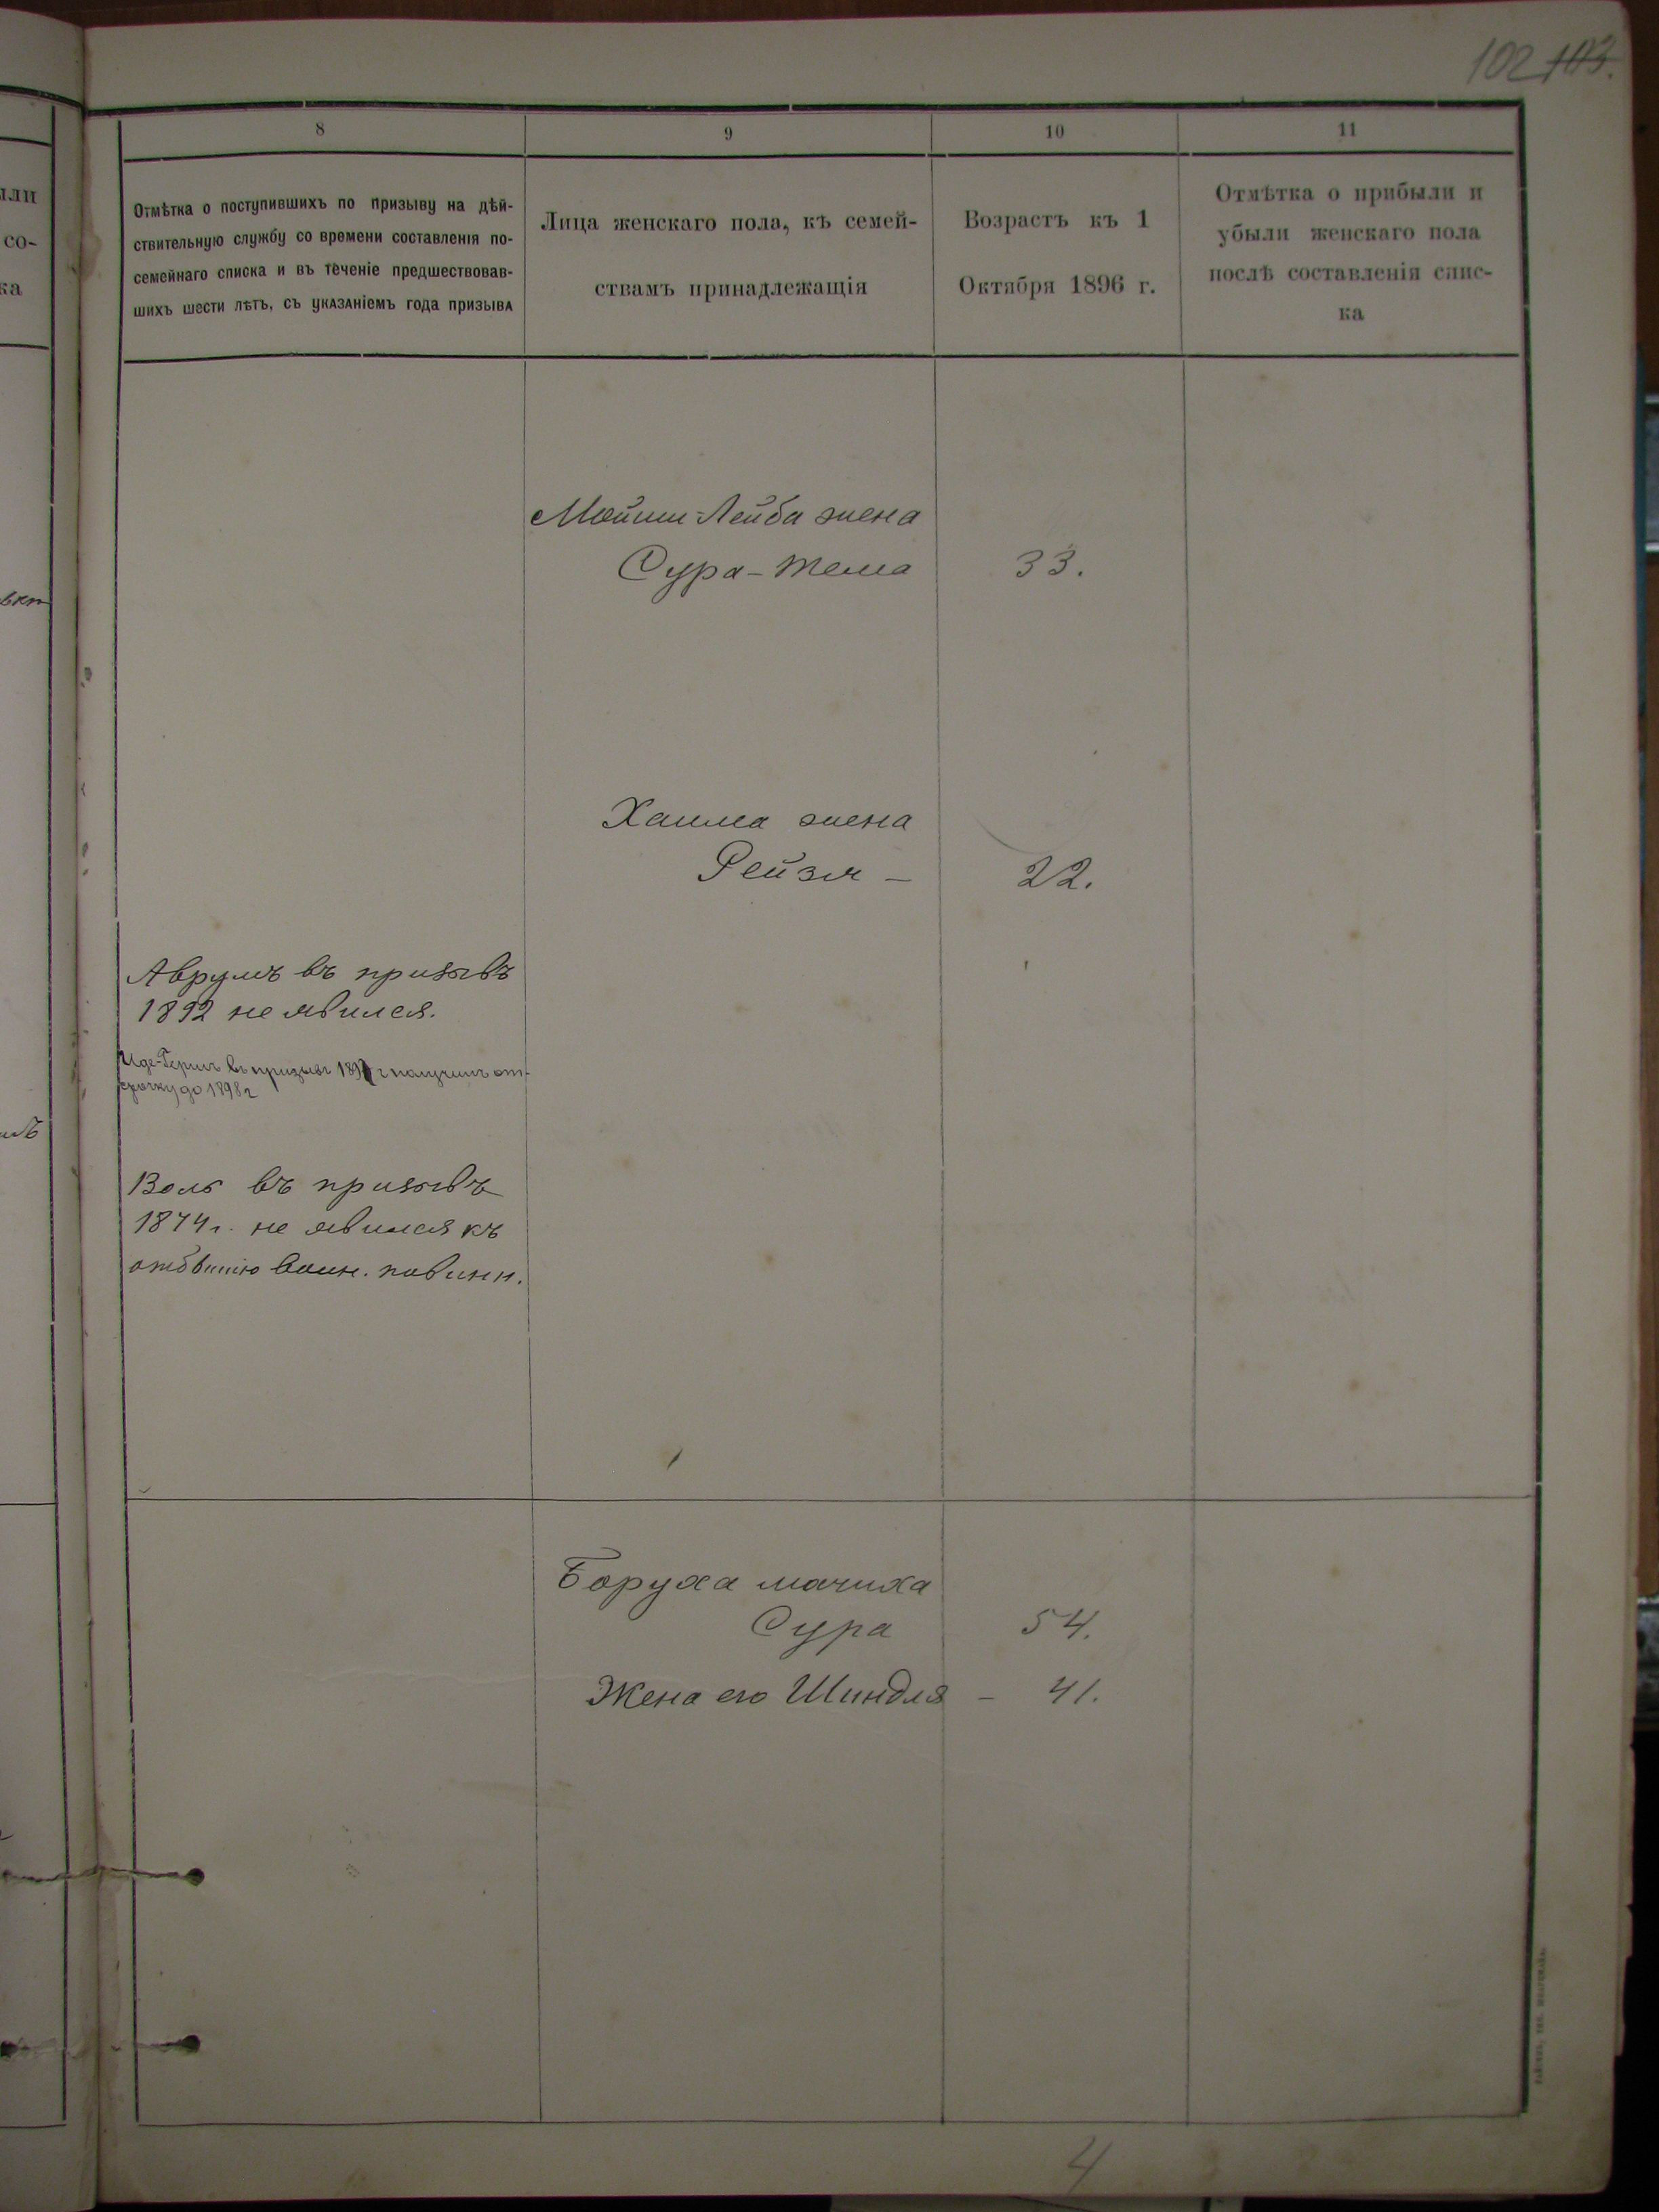 102 103.
8
9
10
11
Отмѣтка о поступившихъ по призыву на дѣй-
ствительную службу со времени составленія по-
семейнаго списка и въ теченіе предшествовав-
шихъ шести лѣтъ, съ указаніемъ года призыва
Лица женскаго пола, къ семей-
ствамъ принадлежащія
Возрастъ къ 1
Октября 1896 г.
Отмѣтка о прибыли и
убыли женскаго пола
послѣ составленія спис-
ка
Мойши-Лейба жена
Сура-Тема 33.
Хаима жена
Рейзя - 22.
Аврумъ въ призывъ
1892 не явился.
Иде-Герш въ призывъ 189 г получилъ от-
срочку до 1898 г
Воль въ призывъ
1874 г. не явился къ
отбытію воин. повинн.
Боруха мачиха
Сура 54.
Жена его Шиндля - 41.
4